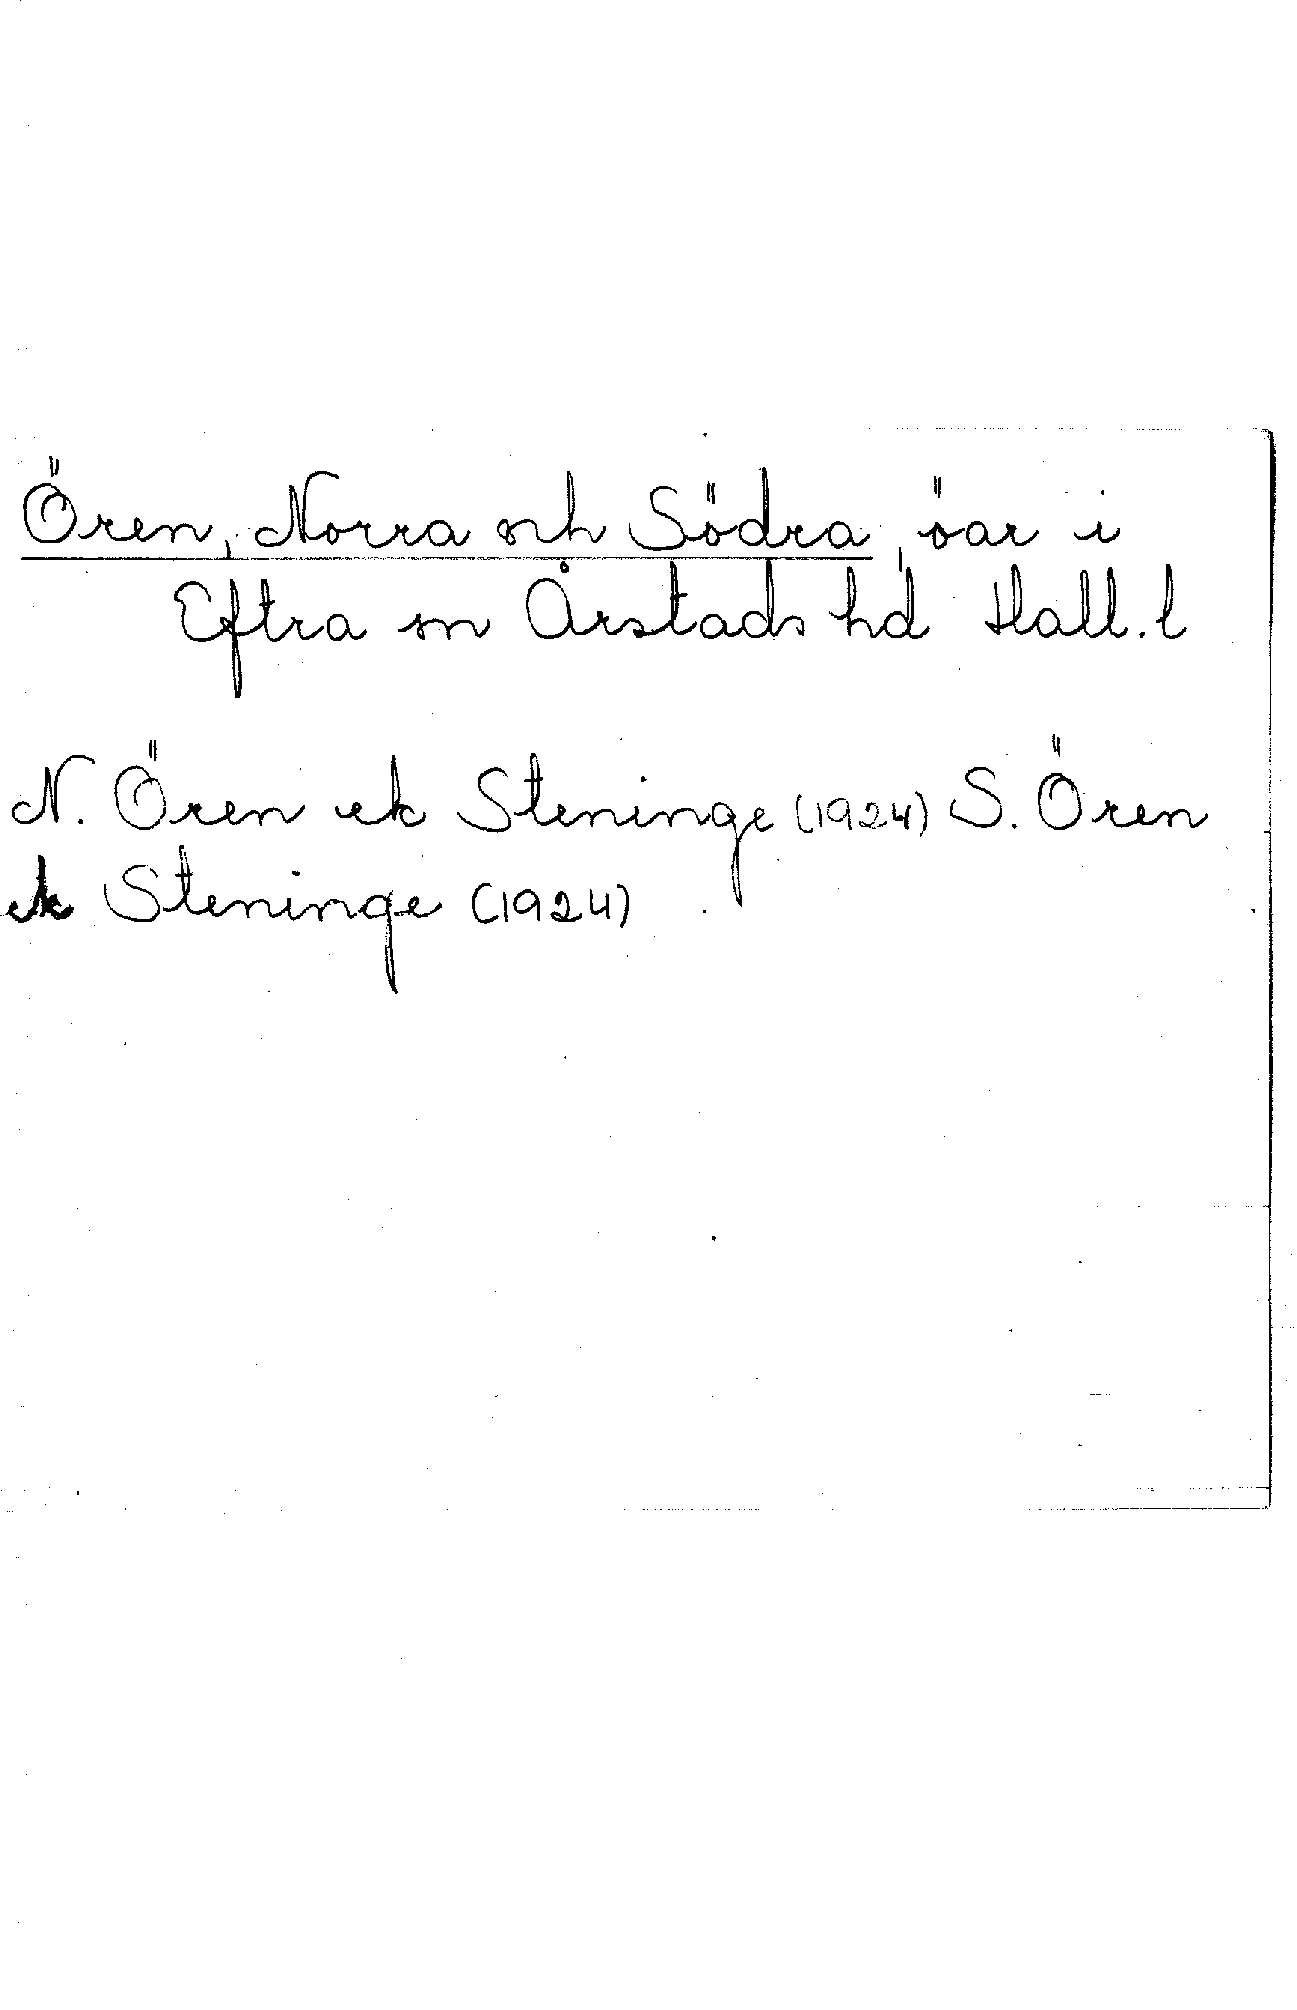 Ören, Norra och Södra, öar i
Eftra sn Årstads hd Hall. l
N. Ören ek Steninge (1924) S. Ören
ek Steninge (1924)